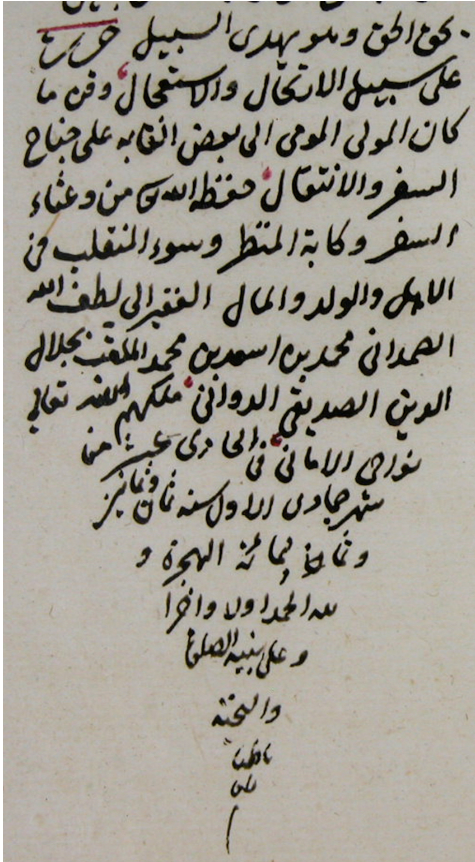 يحق الحق وهو يهدى السبيل حررت
على سبيل الارتحال والاستعجال وقت ما
كان المولى المومى الى بعض القابه على جناح
السفر والانتقال حفظه الله تعا من وعثاء
السفر وكابة المنظر وسوء المنقلب فى
الاهل والولد والمال الفقير الى لطف الله
الصمدانى محمد بن اسعد بن محمد الملقب بجلال
الدين الصديقى الدوانى ملكهم الله تعالى
نواصى الامانى فى الحادى عشر من
شهر جمادى الاول سنه ثمان وثمانين
وثمانمائة الهجرة و
لله الحمد اولا واخرا
وعلى نبيه الصلوة
والتحية